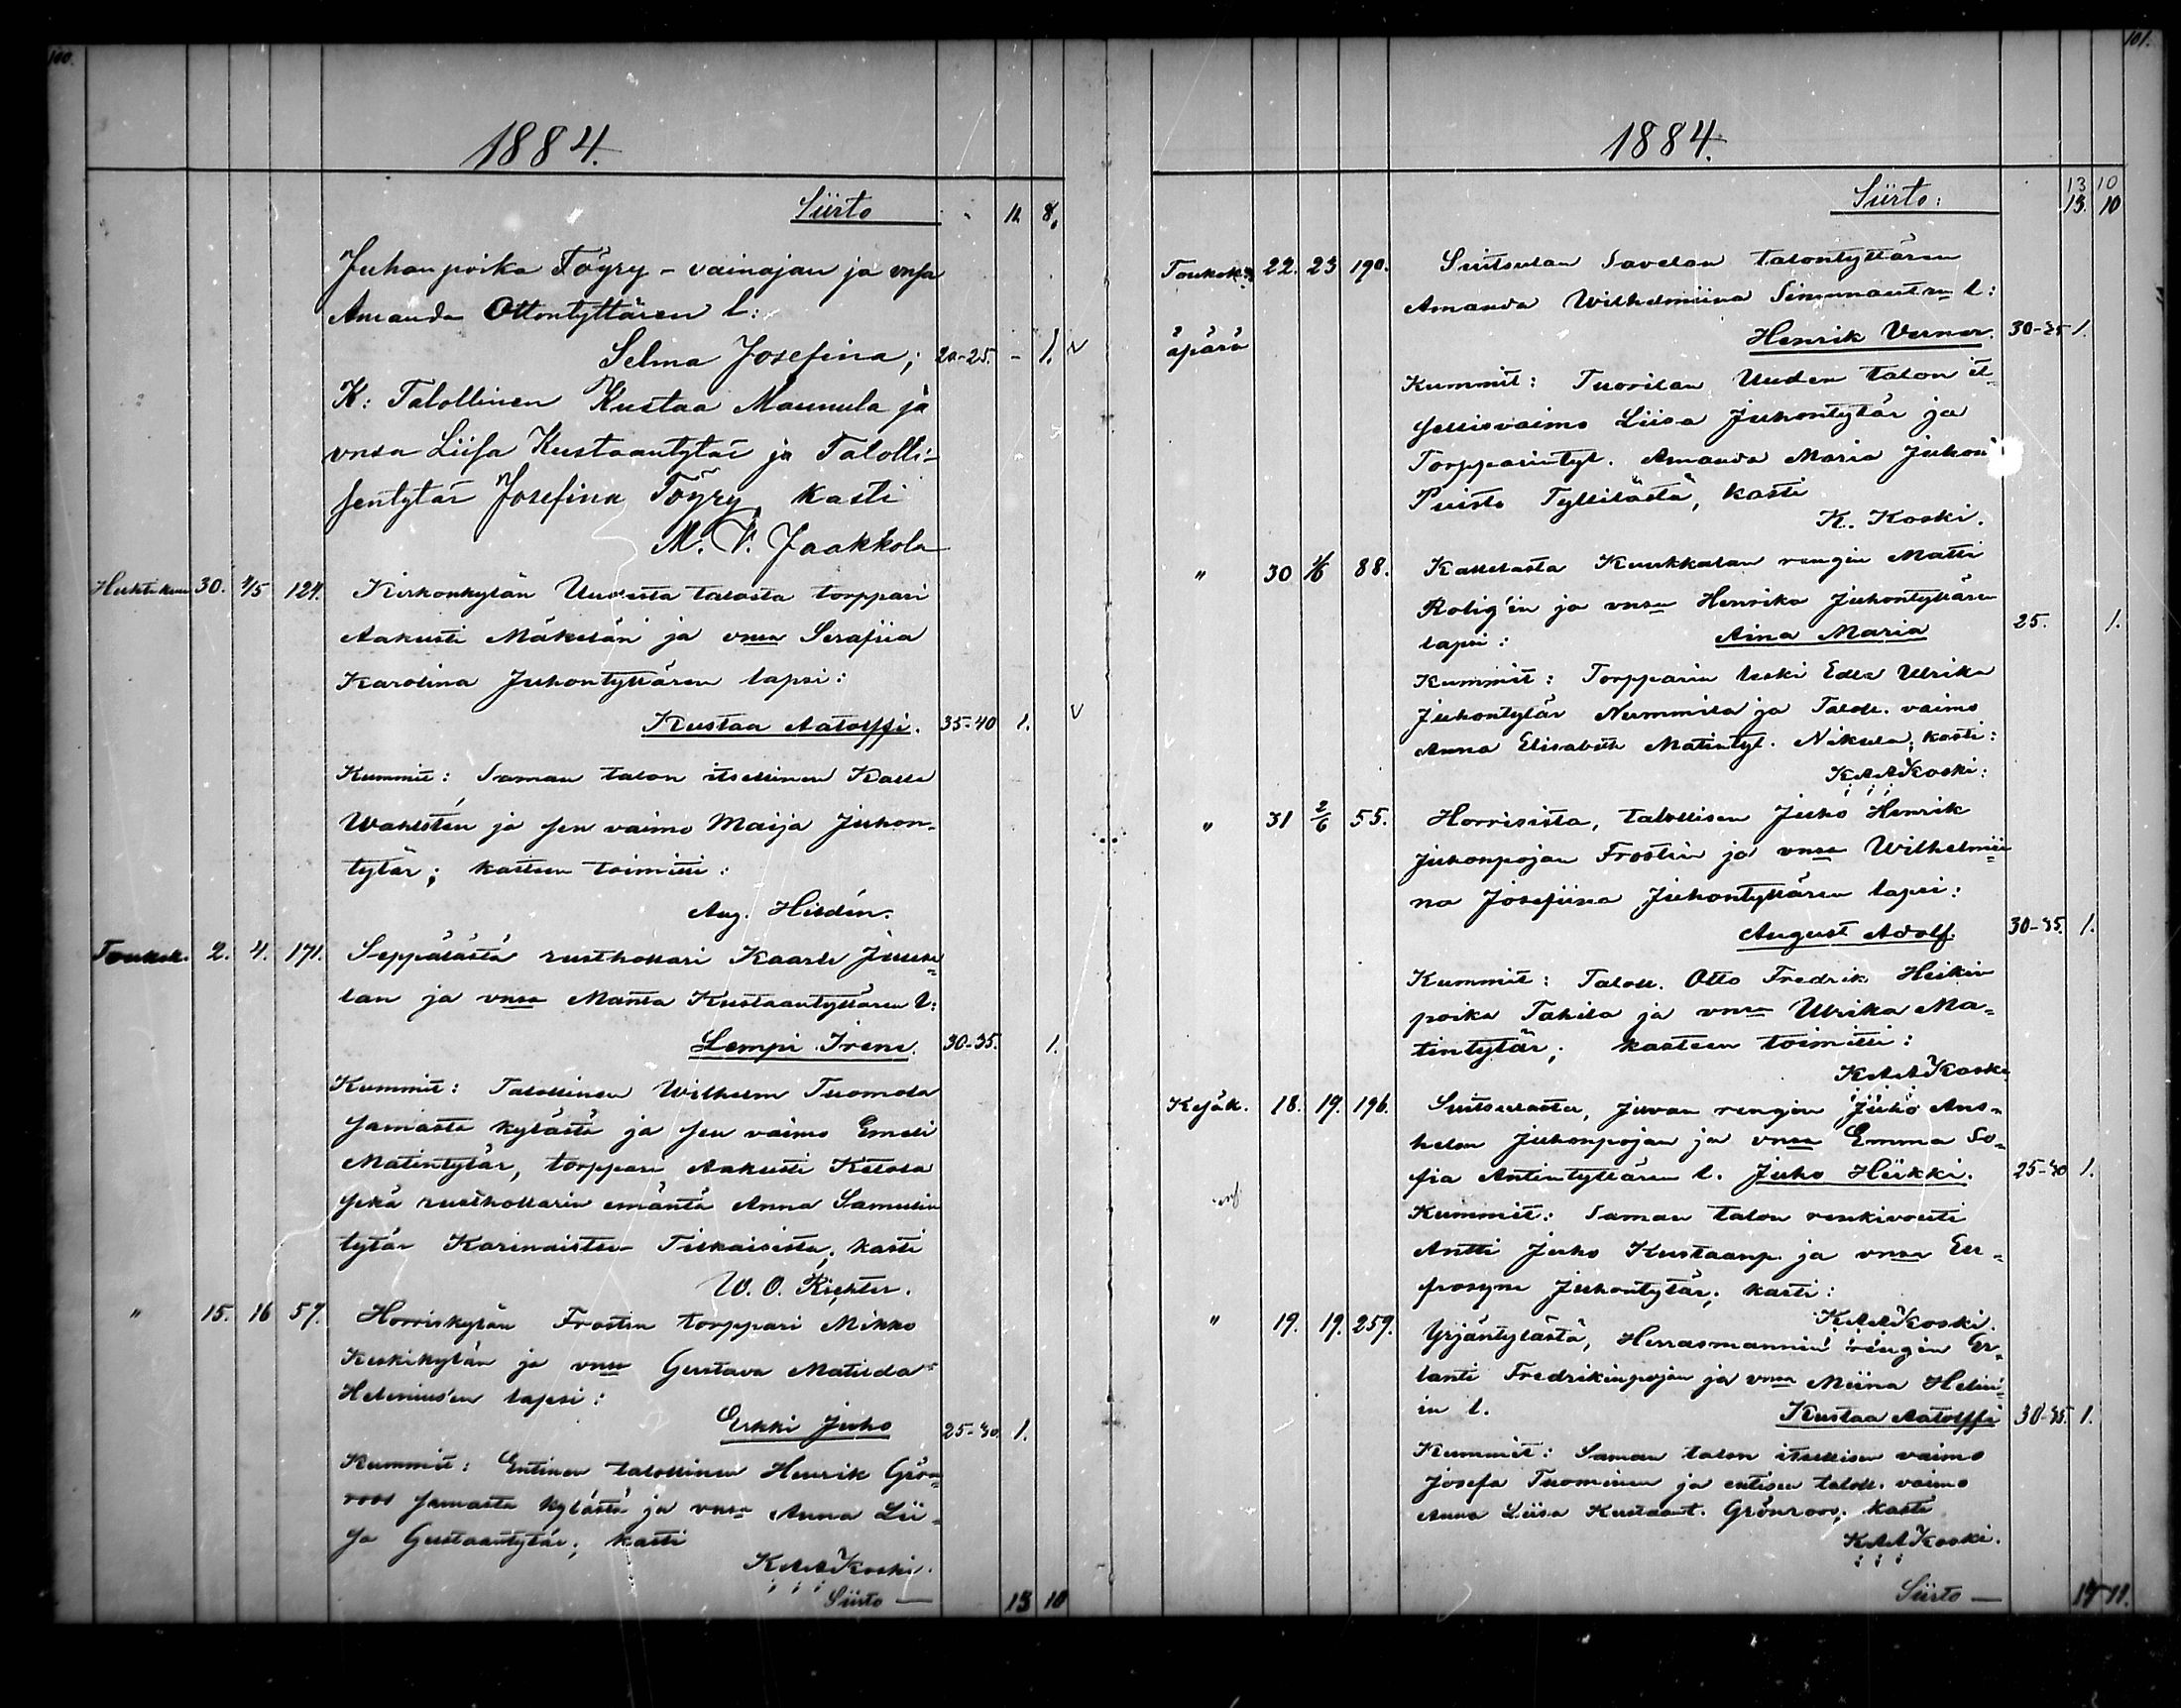 100.
1884.
Siirto - 12 8.
Juhanpoika Töyry - vainajan ja vnsa
Amanda Ottontyttären l:
Selma Josefina; 20-25. - 1. v
K: Talollinen Kustaa Maunula ja
vnsa Liisa Kustaantytär ja Talolli-
sentytär Josefina Töyry, kasti
M. V. Jaakkola
Huhtikuu 30. 4/5 124. Kirkonkylän Uudesta talosta torppari
Aakusti Mäkelän ja vnsa Serafiia
Karolina Juhontyttären lapsi:
Kustaa Aatolffi. 35-40 1. v
Kummit: Saman talon itsellinen Kalle
Wahlstén ja sen vaimo Maija Juhon-
tytär; kasteen toimitti:
Aug. Hildén.
Toukok. 2. 4. 171. Seppälästä rusthollari Kaarle Juuse-
lan ja vnsa Manta Kustaantyttären l:
Lempi Irene. 30-35. 1.
Kummit: Talollinen Wilhelm Tuomola
samasta kylästä ja sen vaimo Emeli
Matintytär, torppari Aakusti Ketola
sekä rusthollarin emäntä Anna Samulin
tytär Karinaisten kasti
W. O. Richter.
" 15. 16 57. Horriskylän Frostin torppari Mikko
Keskikylän ja vnsa Gustava Matilda
Helenius'en lapsi:
Erkki Juho 25-30. 1.
Kummit: Entinen talollinen Henrik Grön-
roos samasta kylästä ja vnsa Anna Lii-
sa Gustaantytär; kasti
K A A Koski.
Siirto — 13 10
101.
1884.
13 10
Siirto: 13. 10
Toukok. 22. 23 190. Suitsulan Savelan talontyttären
Amanda Wilhelmiina Simunantren l:
äpärä Henrik Verner. 30-35 1.
Kummit: Tuorilan Uuden talon it-
sellisvaimo Liisa Juhontytär ja
Torpparintyt. Amanda Maria Juhon
Puisto Tyllilästä, kasti
K. Koski.
" 30 1/6 88. Kallelasta Kuukkalan rengin Matti
Rolig'in ja vnsa Henrika Juhontyttären
lapsi: Aina Maria 25. 1.
Kummit: Torpparin leski Edla Ulrika
Juhontytär Nummila ja Taloll. vaimo
Anna Elisabeth Matintyt. Nikula; kasti:
K A A Koski.
" 31 2/6 55. Horrisista, talollisen Juho Henrik
Juhonpojan Frostin ja vnsa Wilhelmii-
na Josefiina Juhontyttären lapsi:
August Adolf. 30-35. 1.
Kummit: Taloll. Otto Fredrik Heikin
poika Tahila ja vnsa Ulrika Ma-
tintytär; kasteen toimitti:
K A A Koski
Kesäk. 18. 19. 196. Suitsulasta, Juvan rengin Juho Ans-
helm Juhonpojan ja vnsa Emma So-
fia Antintyttären l. Juho Heikki. 25-30 1.
Kummit: Saman talon renkivouti
Antti Juho Kustaanp. ja vnsa Eu-
frosyne Juhontytär; kasti:
K A A Koski.
" 19. 19. 259. Yrjäntylästä, Herrasmannin rengin Er-
lanti Fredrikinpojan ja vnsa Miina Helini-
in l. Kustaa Aatolffi 30-35. 1.
Kummit: Saman talon itsellisen vaimo
Josefa Tuominen ja entisen taloll. vaimo
Anna Liisa Kustaant. Grönroos; kasti
K A A Koski.
Siirto — 17 11.